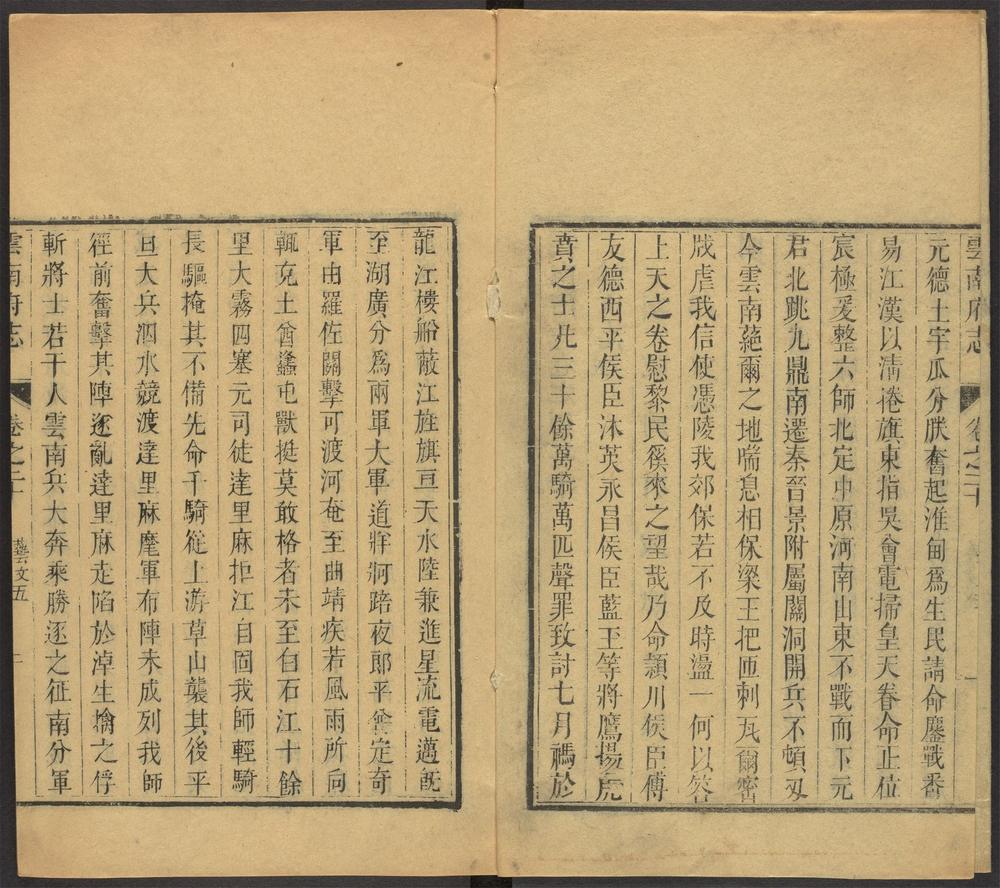 雲南府志 卷之二十
元德土宇瓜分朕奮起淮甸爲生民請命鏖戰番
易江漢以清捲旗東指吳會電掃皇天眷命正位
宸極爰整六師北定中原河南山東不戰而下元
君北跳九鼎南遷秦晉景附屬關洞開兵不頓刃
今雲南蕝爾之地喘息相保梁王把匝剌瓦爾密
戕虐我信使憑陵我郊保若不及時盪一何以答
上天之眷慰黎民徯來之望哉乃命潁川侯臣傅
友德西平侯臣沐英永昌侯臣藍玉等將鷹揚虎
賁之士凡三十餘萬騎萬匹聲罪致討七月禡於
龍江樓船蔽江旌旗亘天水陸兼進星流電邁旣
至湖廣分爲兩軍大軍道牂牁踣夜郎平僰定奇
軍由羅佐關擊可渡河奄至曲靖疾若風雨所向
輒克土酋蠭屯獸挺莫敢格者未至白石江十餘
里大霧四塞元司徒達里麻拒江自固我師輕騎
長驅掩其不備先命千騎從上游草山襲其後平
旦大兵泅水競渡達里麻麾軍布陣未成列我師
徑前奮擊其陣遂亂達里麻走陷於淖生擒之俘
斬將士若干人雲南兵大奔乘勝逐之征南分軍
雲南府志 卷之二十 藝文五 一